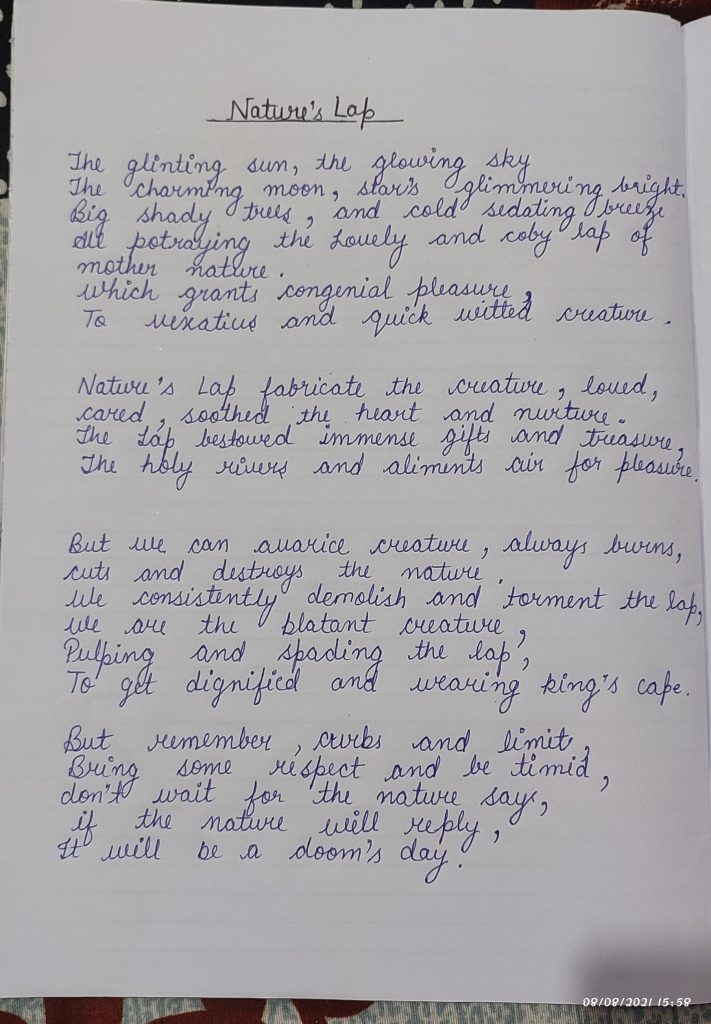 Nature's Lap
The glinting sun, the glowing sky
The charming moon, star's glimmering bright.
Big shady trees, and cold sedating breeze
All potraying the Lovely and coby lap of
mother nature.
which grants congenial pleasure,
To vexatius and quick witted creature.
Nature's Lap fabricate the creature, loved,
cared, soothed the heart and nurture.
The Lap bestowed immense gifts and treasure,
The holy rivers and aliments air for pleasure.
But we can avarice creature, always burns,
cuts and destroys the nature.
We consistently demolish and torment the lap,
we are the blatant creature,
Pulping and spading the lap,
To get dignified and wearing king's cape.
But remember, curbs and limit,
Bring some respect and be timid,
don't wait for the nature says,
if the nature will reply,
It will be a doom's day.
08/08/2021 15:58